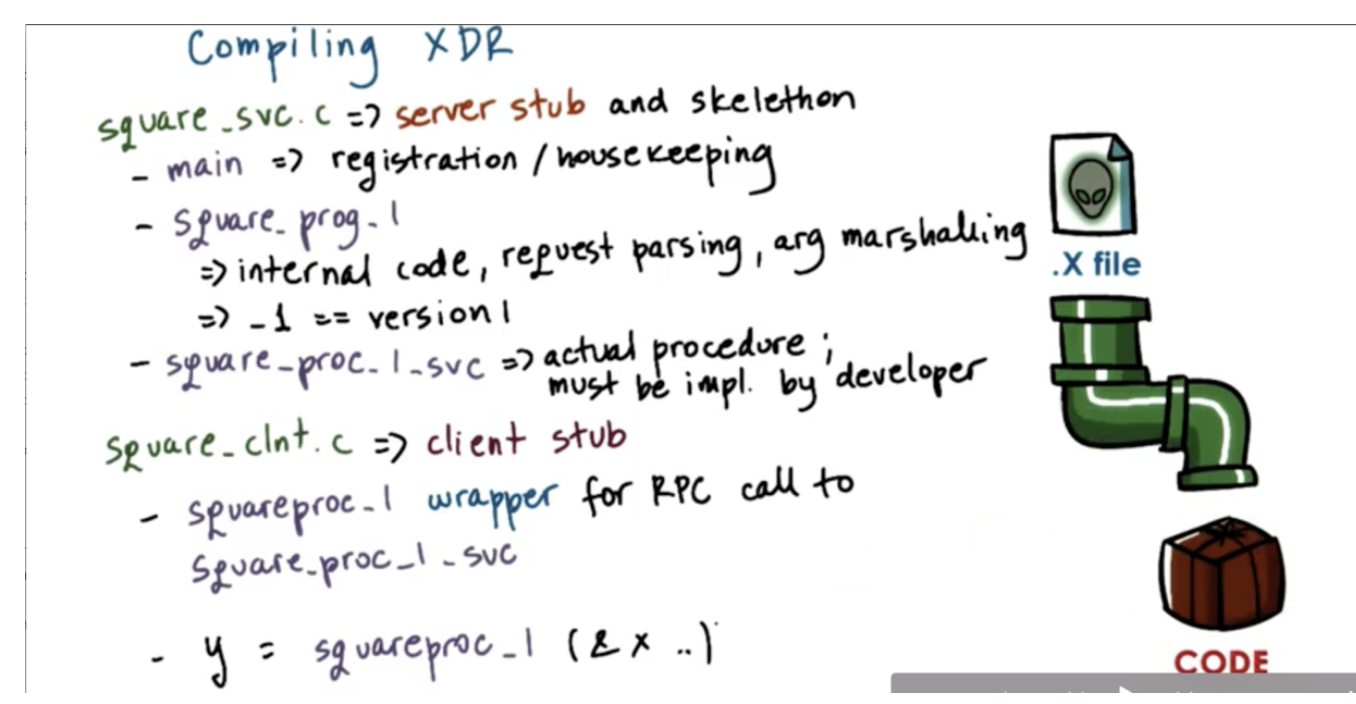 Compiling XDR
square_svc.c => server stub and skelethon
- main => registration / housekeeping
- square_prog_1
=> internal code, request parsing, arg marshalling
=> _1 == version 1
- square_proc_1_svc => actual procedure ;
must be impl. by developer
square_clnt.c => client stub
- squareproc_1 wrapper for RPC call to
square_proc_1_svc
- y = squareproc_1 (& x ..)
.X file
CODE